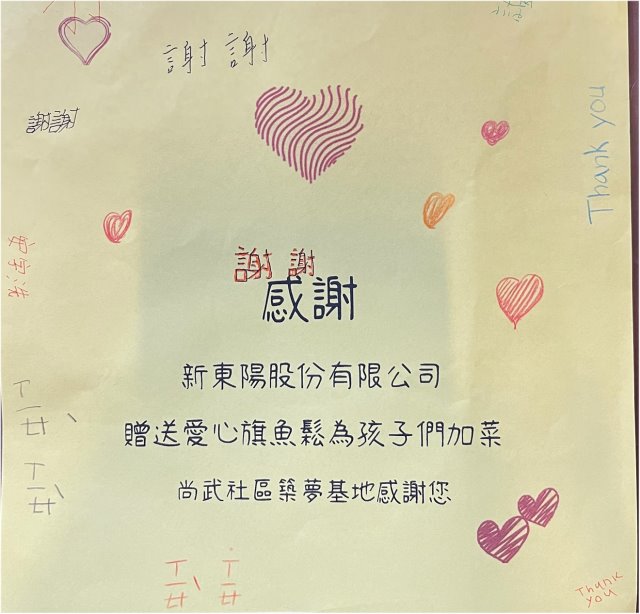 謝謝
謝謝
Thank you
謝謝
感謝
新東陽股份有限公司
贈送愛心旗魚鬆為孩子們加菜
尚武社區築夢基地感謝您
ㄒㄧㄝˋ
ㄒㄧㄝˋ
ㄒㄧㄝˋ ㄒㄧㄝ˙
Thank
you